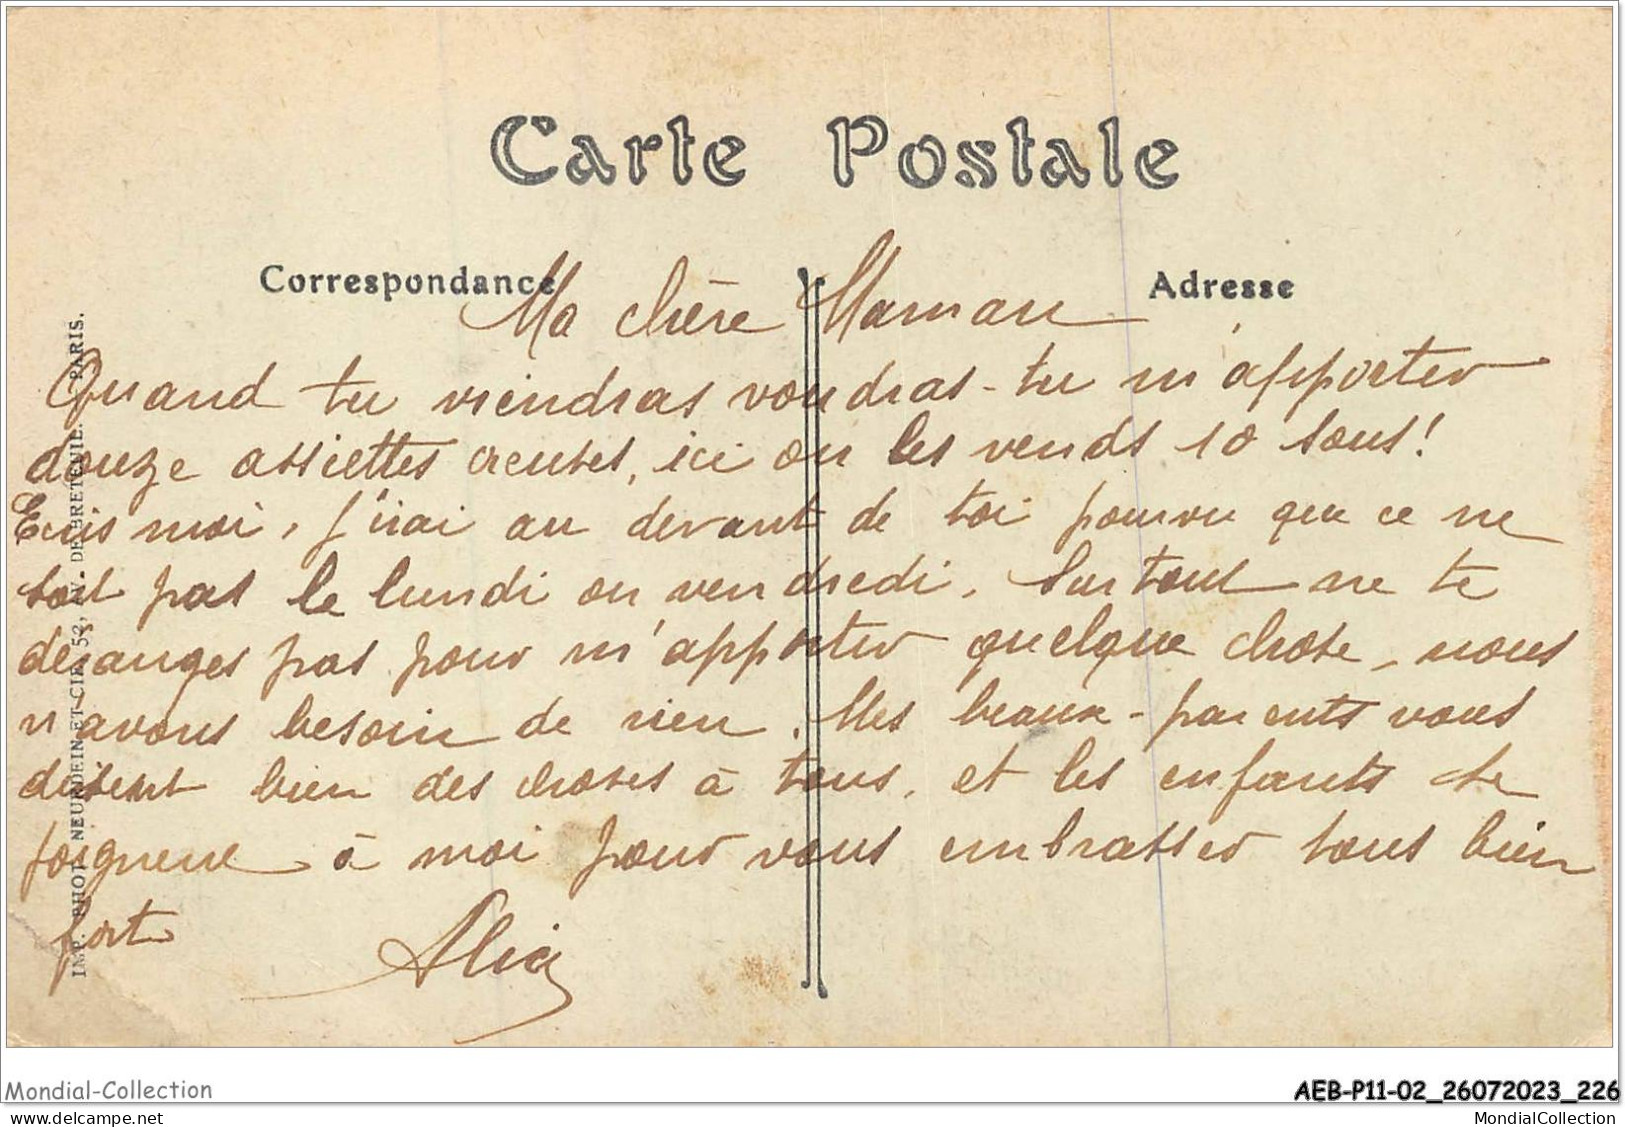 Carte Postale
Correspondance
Adresse
Ma chère Maman
Quand tu viendras voudras-tu m'apporter
douze assiettes creuses, ici on les vends 10 sous!
Ecris moi, j'irai au devant de toi pourvu que ce ne
soit pas le lundi ou vendredi. Surtout ne te
déranges pas pour m'apporter quelque chose, nous
n'avons besoin de rien. Mes beaux-parents vous
disent bien des choses à tous, et les enfants se
joignent à moi pour vous embrasser tous bien
fort
Alice
IMP. PHOT. NEURDEIN ET CIE, 52, AV. DE BRETEUIL. PARIS.
Mondial-Collection
AEB-P11-02_26072023_226
MondialCollection